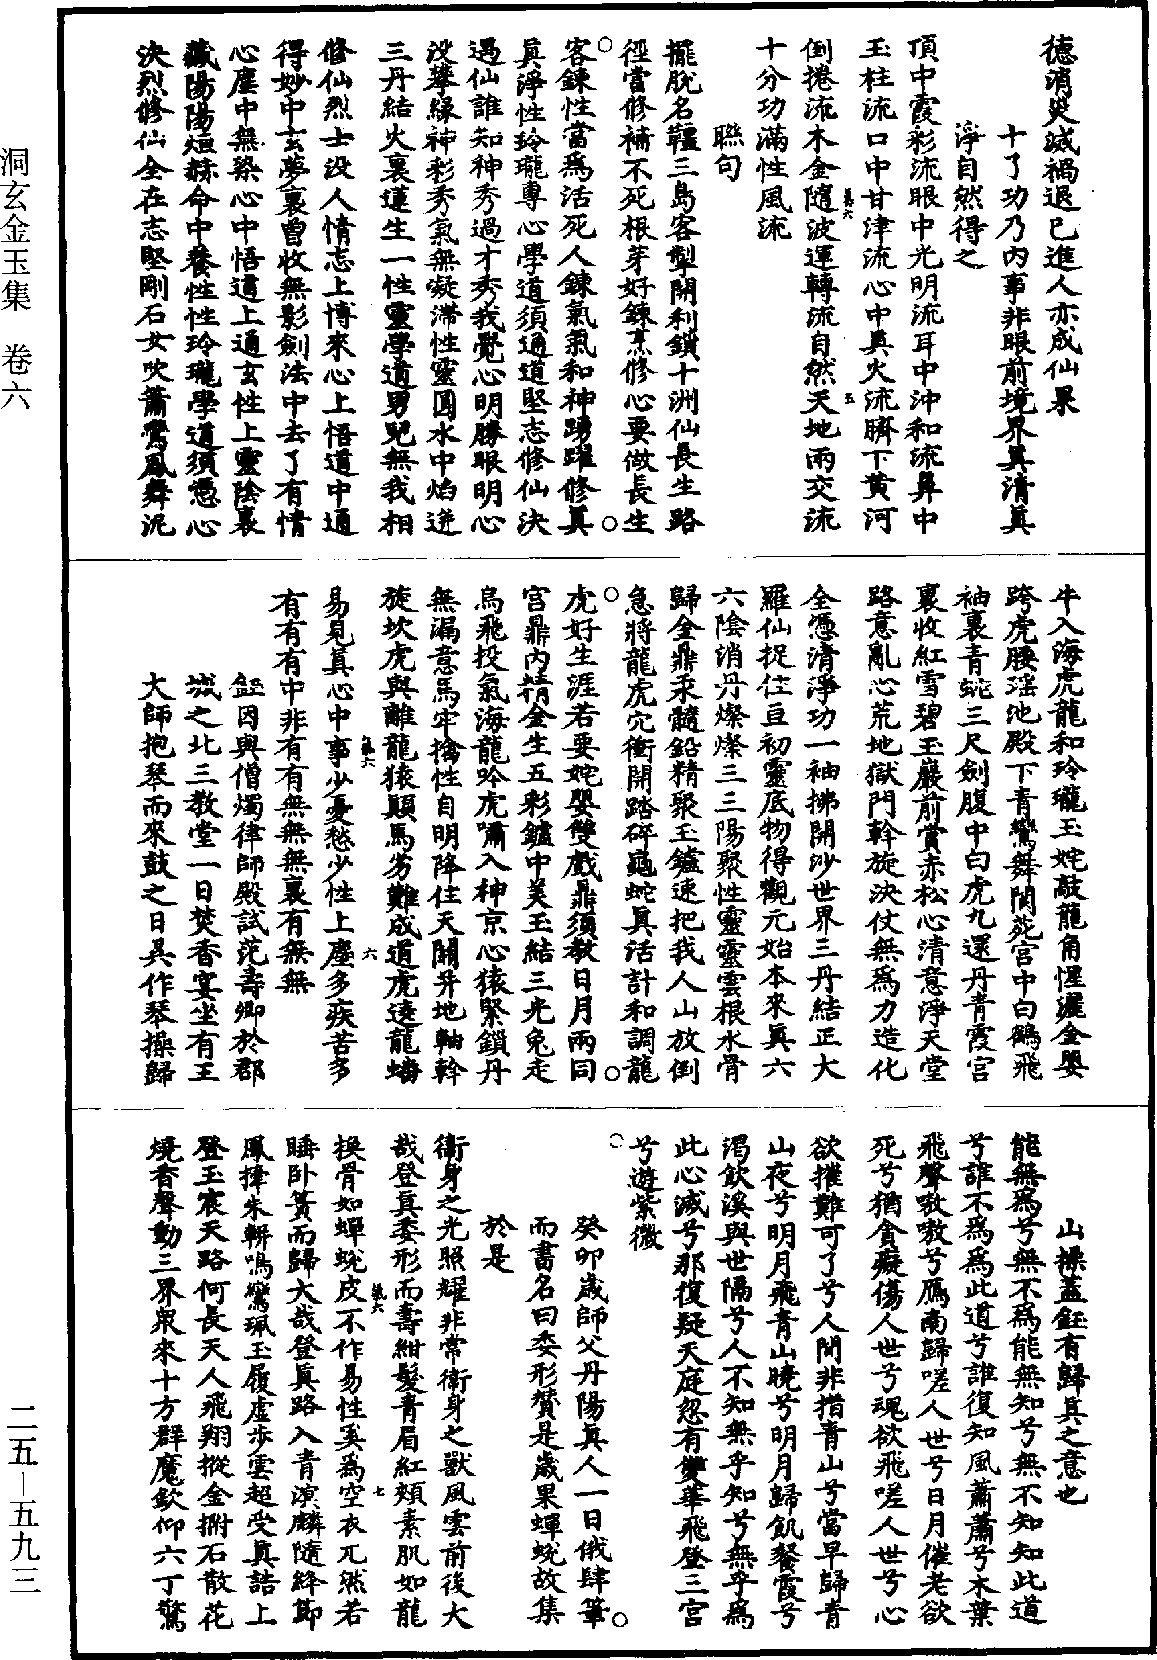 德消災滅禍退己進人亦成仙果
十了功乃內事非眼前境界其清真
淨自然得之
頂中霞彩流眼中光明流耳中沖和流鼻中
玉柱流口中甘津流心中真火流臍下黃河
倒捲流木金隨波運轉流自然天地兩交流
十分功滿性風流
聯句
擺脫名韁三島客掣開利鎖十洲仙長生路
徑當修補不死根芽好鍊烹修心要做長生
客鍊性當為活死人鍊氣氣和神踴躍修真
真淨性玲瓏專心學道須通道堅志修仙決
遇仙誰知神秀過才秀我覺心明勝眼明心
沒攀緣神彩秀氣無凝滯性靈圓水中焰迸
三丹結火裏蓮生一性靈學道男兒無我相
修仙烈士沒人情志上博來心上悟道中通
得妙中玄夢裏曾收無影劍法中去了有情
心塵中無染心中悟道上通玄性上靈陰裏
藏陽陽烜赫命中養性性玲瓏學道須憑心
決烈修仙全在志堅剛石女吹簫鸞鳳舞泥
牛入海虎龍和玲瓏玉姹敲龍角惺灑金嬰
跨虎腰瑤池殿下青鸞舞閬苑宮中白鶴飛
袖裏青蛇三尺劍腹中白虎九還丹青霞宮
裏收紅雪碧玉巖前賞赤松心清意淨天堂
路意亂心荒地獄門斡旋決仗無為力造化
全憑清淨功一袖拂開沙世界三丹結正大
羅仙捉住亘初靈底物得觀元始本來真六
六陰消丹燦燦三三陽聚性靈靈雲根水骨
歸金鼎汞髓鉛精聚玉鑪速把我人山放倒
急將龍虎穴衝開踏碎龜蛇真活計和調龍
虎好生涯若要姹嬰雙戲鼎須教日月兩同
宮鼎內精金生五彩鑪中美玉結三光兔走
烏飛投氣海龍吟虎嘯入神京心猿緊鎖丹
無漏意馬牢擒性自明降住天關并地軸斡
旋坎虎與離龍猿顛馬劣難成道虎遶龍蟠
易見真心中事少憂愁少性上塵多疾苦多
有有有中非有有無無無裏有無無
鈺因與僧燭律師殿試范壽卿於郡
城之北三教堂一日焚香宴坐有王
大師抱琴而來鼓之日其作琴操歸
山操蓋鈺有歸真之意也
能無為兮無不為能無知兮無不知知此道
兮誰不為為此道兮誰復知風蕭蕭兮木葉
飛聲嗷嗷兮鴈南歸嗟人世兮日月催老欲
死兮猶貪癡傷人世兮魂欲飛嗟人世兮心
欲摧難可了兮人間非指青山兮當早歸青
山夜兮明月飛青山曉兮明月歸飢餐霞兮
渴飲溪與世隔兮人不知無乎知兮無乎為
此心滅兮那復疑天庭忽有雙華飛登三宮
兮遊紫微
癸卯歲師父丹陽真人一日俄肆筆
而書名曰委形贊是歲果蟬蛻故集
於是
衛身之光照耀非常衛身之獸風雲前後大
哉登真委形而壽紺髮青眉紅頰素肌如龍
換骨如蟬蛻皮不作易性奚為空衣兀然若
睡臥簀而歸大哉登真路入青溟麟隨絳節
鳳擁朱軿鳴鸞珮玉履虛步雲超受真誥上
登玉宸天路何長天人飛翔摐金擊石散花
燒香聲動三界眾來十方群魔欽仰六丁驚
洞玄金玉集　卷六
二五—五九三